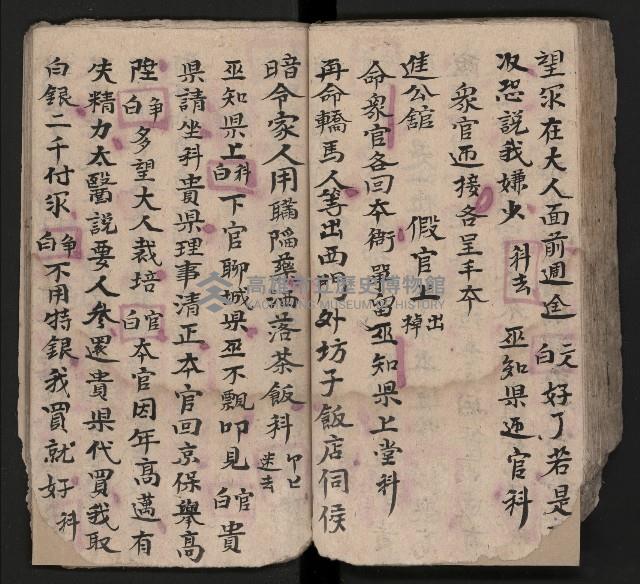 望祈在大人面前週全 文白 好了若是
收恐說我嫌少 科去 巫知県迎官科
衆官迊接各呈手本
進公舘 假官上 出掉
命衆官各回本衙單留巫知県上堂科
再命轎馬人等出西関外坊子飯店伺候
暗令家人用瞞陥藥洒落茶飯科
巫知県上 科白 下官聊城県巫不飄叩見 官白 貴
県請坐科貴県理事清正本官回京保舉高
陞 争白 多望大人裁培 官白 本官因年高邁有
失精力太醫説要人參還貴県代買我取
白銀二千付尔 争白 不用特銀我買就好 科
高雄市立歷史博物館
KAOHSIUNG MUSEUM OF HISTORY